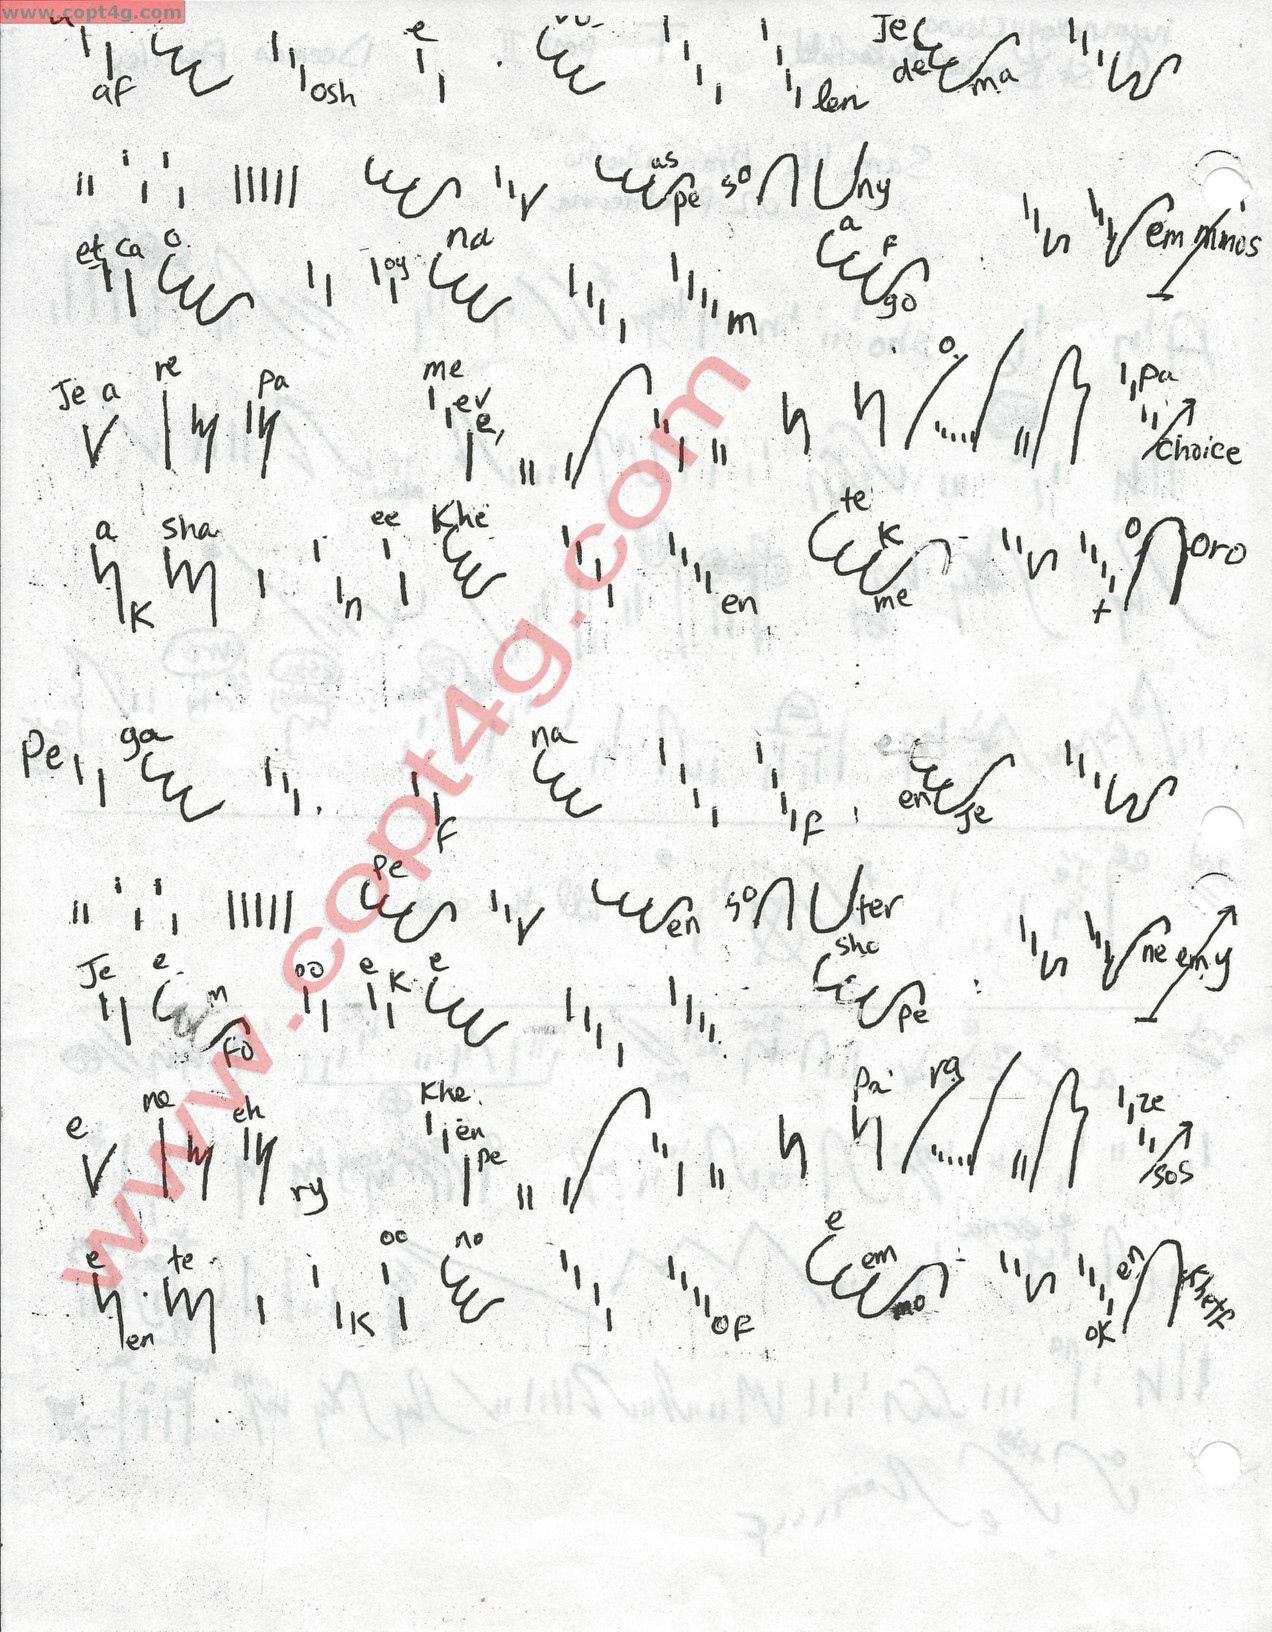 www.copt4g.com
af osh e len Je de ma
as pe so ny
et ca o oy na m a f go em mmos
Je a re pa me ev e o pa choice
a k sha n ee Khe en te k me t o oro
Pe ga f na f en je
pe en so ter
Je e m fo oo e k e sho pe ne em y
e ne eh ry Khe en pe pai ra ze sos
e en te k oo no of e em mo ok en
www.copt4g.com